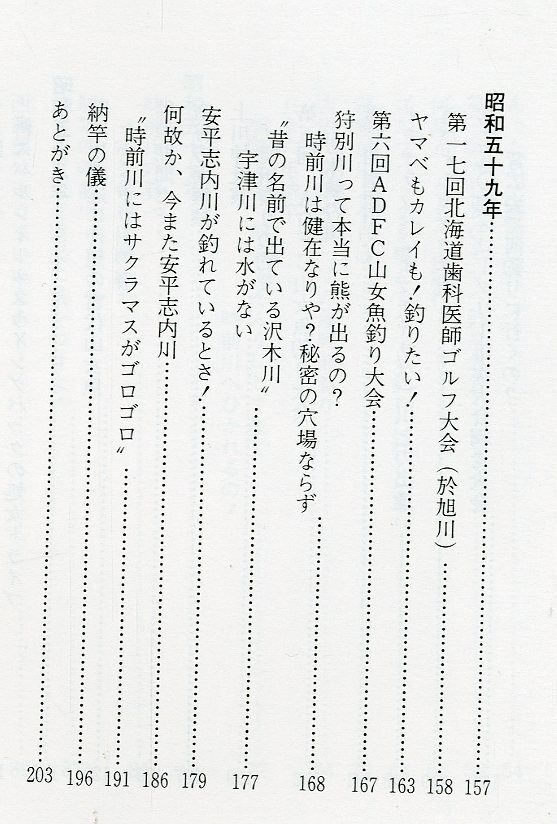 昭和五十九年……157
第一七回北海道歯科医師ゴルフ大会（於旭川）……158
ヤマベもカレイも！釣りたい！……163
第六回ADFC山女魚釣り大会……167
狩別川って本当に熊が出るの？
時前川は健在なりや？秘密の穴場ならず……168
〝昔の名前で出ている沢木川〟
宇津川には水がない……177
安平志内川が釣れているとさ！……179
何故か、今また安平志内川……186
〝時前川にはサクラマスがゴロゴロ〟……191
納竿の儀……196
あとがき……203